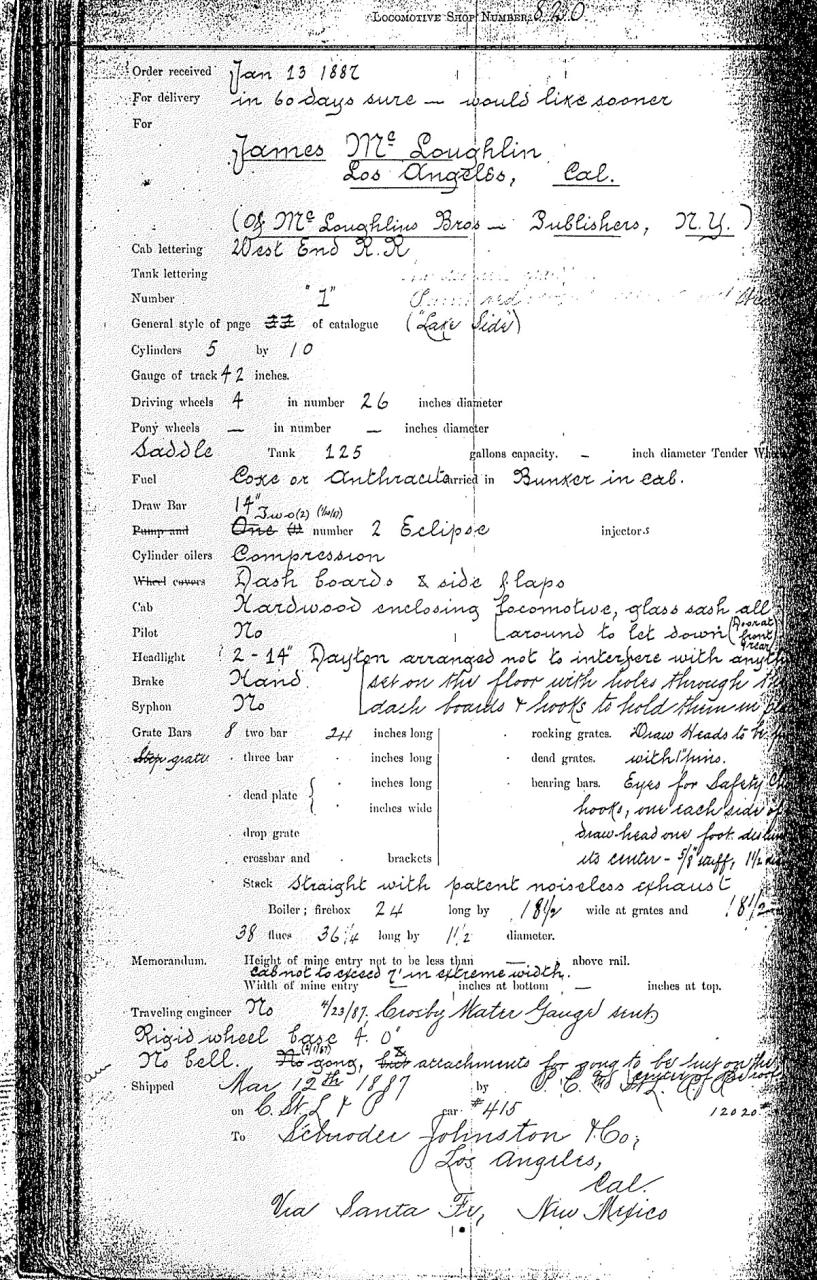 LOCOMOTIVE SHOP NUMBER, 820
Order received Jan 13 1887
For delivery in 60 days sure — would like sooner
For
James Mc Loughlin
Los Angeles, Cal.
(Of Mc Loughlins Bros — Publishers, N.Y.)
Cab lettering West End R.R
Tank lettering
Number "1"
General style of page 33 of catalogue ("Lake Side")
Cylinders 5 by 10
Gauge of track 42 inches.
Driving wheels 4 in number 26 inches diameter
Pony wheels — in number — inches diameter
Saddle Tank 125 gallons capacity. — inch diameter Tender
Fuel Coke or Anthracite carried in Bunker in cab.
Draw Bar 14"
Two (2)
Pump and One (1) number 2 Eclipse injectors
Cylinder oilers Compression
Wheel covers Dash boards & side flaps
Cab Hardwood enclosing locomotive, glass sash all
Pilot No around to let down (Door at front & rear
Headlight 2 - 14" Dayton arranged not to interfere with
Brake Hand set on the floor with holes through
Syphon No dash boards & hooks to hold them in
Grate Bars 8 two bar 24 inches long rocking grates. Draw Heads to
Step grate three bar inches long dead grates. with 1" pins.
dead plate { inches long bearing bars. Eyes for Safety
inches wide hooks, one each side of
drop grate draw-head one foot
crossbar and brackets its center - 5/8" 1 1/2
Stack Straight with patent noiseless exhaust
Boiler; firebox 24 long by 18 1/2 wide at grates and 18 1/2
38 flues 36 1/4 long by 1 1/2 diameter.
Memorandum. Height of mine entry not to be less than — above rail.
Cab not to exceed 7' in extreme width.
Width of mine entry — inches at bottom — inches at top.
Traveling engineer No 4/23/87. Crosby Water Gauge sent
Rigid wheel base 4' 0"
No bell. No gong, but attachments for gong to be put on the
Shipped Mar 12th 1887 by
on C. St. L & P car #415 12020#
To Schroder Johnston & Co,
Los Angeles,
Cal.
Via Santa Fe, New Mexico